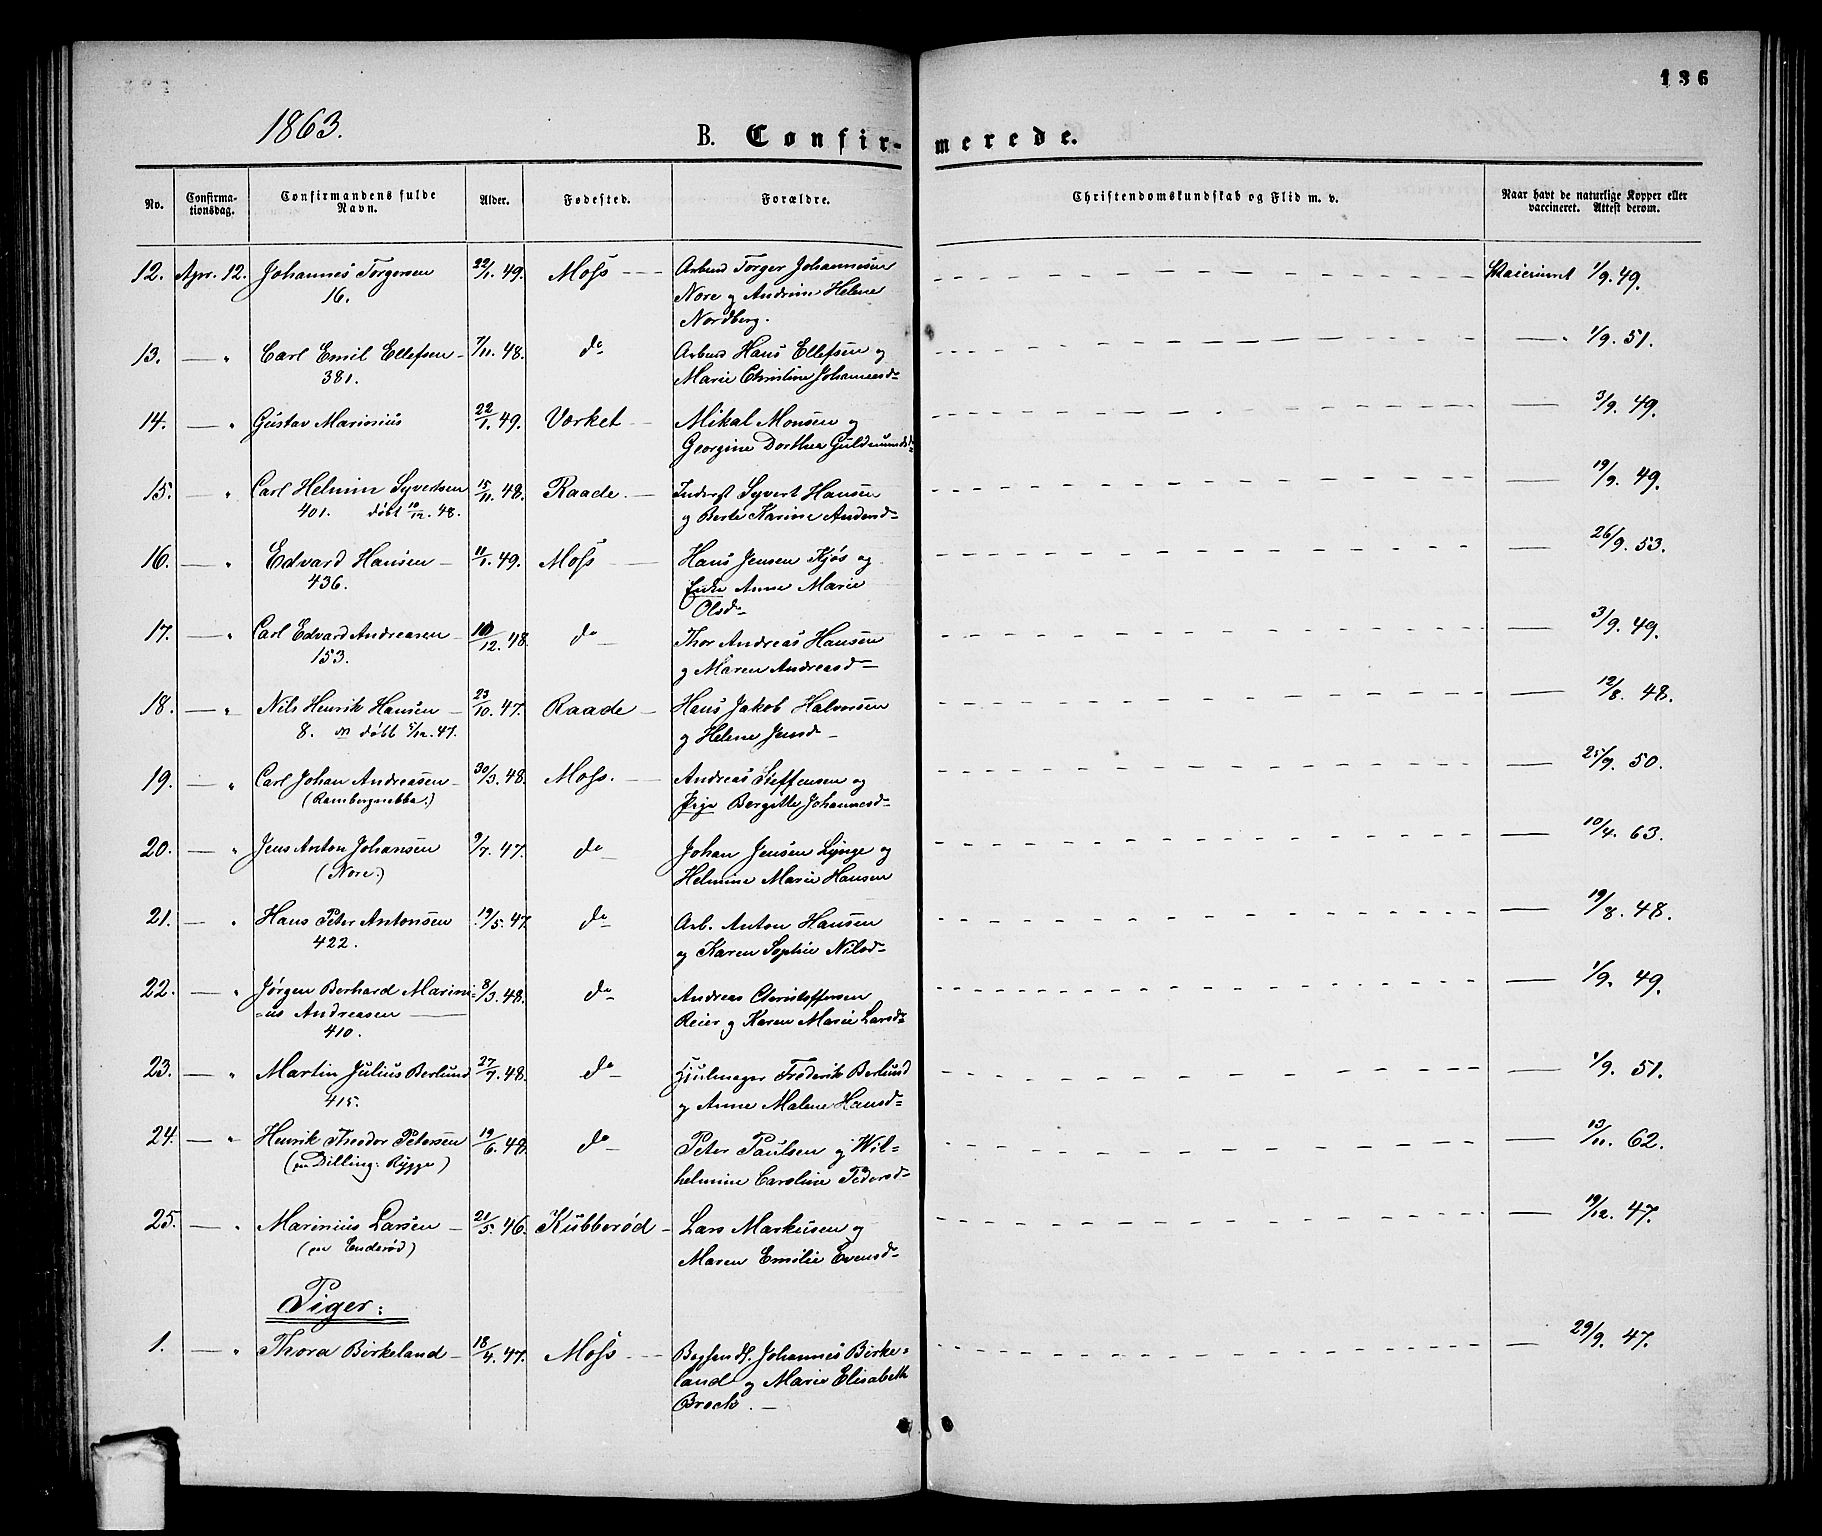 136
1863.
B. Confirmerede.
No. Confirmationsdag. Confirmandens fulde Navn. Alder. Fødested. Forældre. Christendomskundskab og Flid m. v. Naar havt de naturlige Kopper eller vaccineret. Attest derom.
12. Apr. 12. Johannes Torgersen 22/1. 49. Moss Arbmd Torger Johannesen 1/9. 49.
16. Nore og Andrine Helene
Nordberg.
13. — " Carl Emil Ellefsen 7/11. 48. do Arbmd Hans Ellefsen og — " 1/9. 51.
381. Marie Christine Johannesd
14. — " Gustav Marinius 22/1. 49. Værket Mikal Monsen og — 3/9. 49.
Georgine Dorthea
15. — " Carl Helmin Syvertsen 15/11. 48. Raade. Inderst Syvert Hansen — 19/9. 49.
401. døbt 10/12. 48. og Berte Karine Andersd
16. — " Edvard Hansen 11/1. 49. Moss Hans Jensen Kjøs og — 26/9. 53.
436. Enke Anne Marie
Olsd
17. — " Carl Edvard Andreasen 10/12. 48. do Thor Andreas Hansen — 3/9. 49.
153. og Maren Andreasd
18. — " Nils Henrik Hansen 23/10. 47. Raade Hans Jakob Halvorsen — 12/8. 48.
8. døbt 5/12. 47. og Helene Jensd
19. — " Carl Johan Andreasen 30/3. 48. Moss. Andreas Steffensen og — 25/9. 50.
(Rambergnebba.) Pige Bergitte Johannesd
20. — " Jens Anton Johansen 9/7. 47. do Johan Jensen Lynge og — 10/4. 63.
(Nore.) Helmine Marie Hansen
21. — " Hans Peter Antonsen 19/5. 47. do Arb. Anton Hansen — 19/8. 48.
422. og Karen Sophie Nilsd
22. — " Jørgen Berhard Marini- 8/3. 48. do Andreas Christoffersen — 1/9. 49.
us Andreasen Reier og Karen Marie Larsd
410.
23. — " Martin Julius Berlund 27/7. 48. do Hjulmager Frederik Berlund — 1/9. 51.
415. og Anne Malene Hansd
24. — " Henrik Theodor Petersen 19/6. 48. do Peter Paulsen og Wil- — 13/11. 62.
(Dilling: Rygge) helmine Caroline Pedersd
25. — " Marinius Larsen 21/5. 46. Kubberød Lars Markusen og — 19/12. 47.
(Enderød) Maren Emilie Evensd
Piger:
1. — " Thora Birkeland 18/4. 47. Moss Johannes Birke- — 29/9. 47.
land og Marie Elisabeth
Brock.